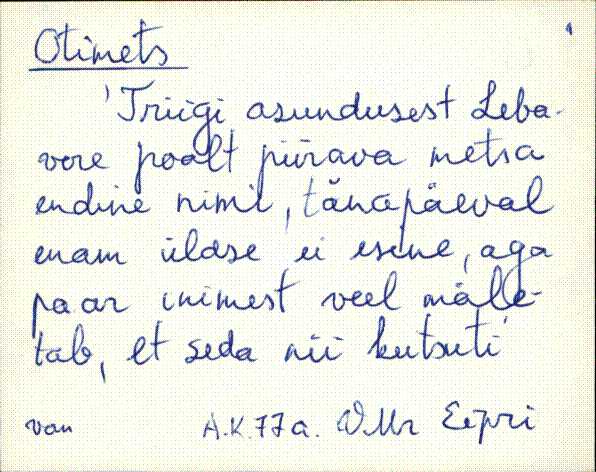 Otimets
'Triigi asundusest Leba-
vere poolt piirava metsa
endine nimi, tänapäeval
enam üldse ei esine, aga
paar inimest veel mäle-
tab, et seda nii kutsuti'
van A.K. 77a. VMr Eipri